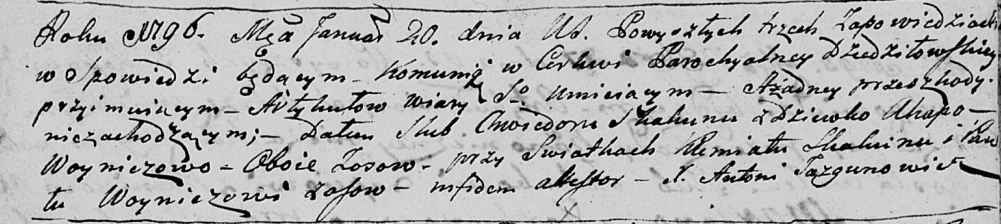 Roku 1796. Mca Januar 20. dnia Ub. Powyszłych trzech Zapowiedziach
w Spowiedzi będącym – Komunią w Cerkwi Parochyalney Dziedziłowskiey
przyimuiącym – Artykułow wiary S. umieiącym – Ażadney przeszkody
niezachodzącym; – Dałem Slub Chwiedoru Skakunu z Dziewko Ahapo –
Woyniczowo – Oboie Zosow – przy Swiatkach Remiału Skakunu i
tu Woyniczowi Zosow – infidem attestor – X. Antoni Jazgunowicz